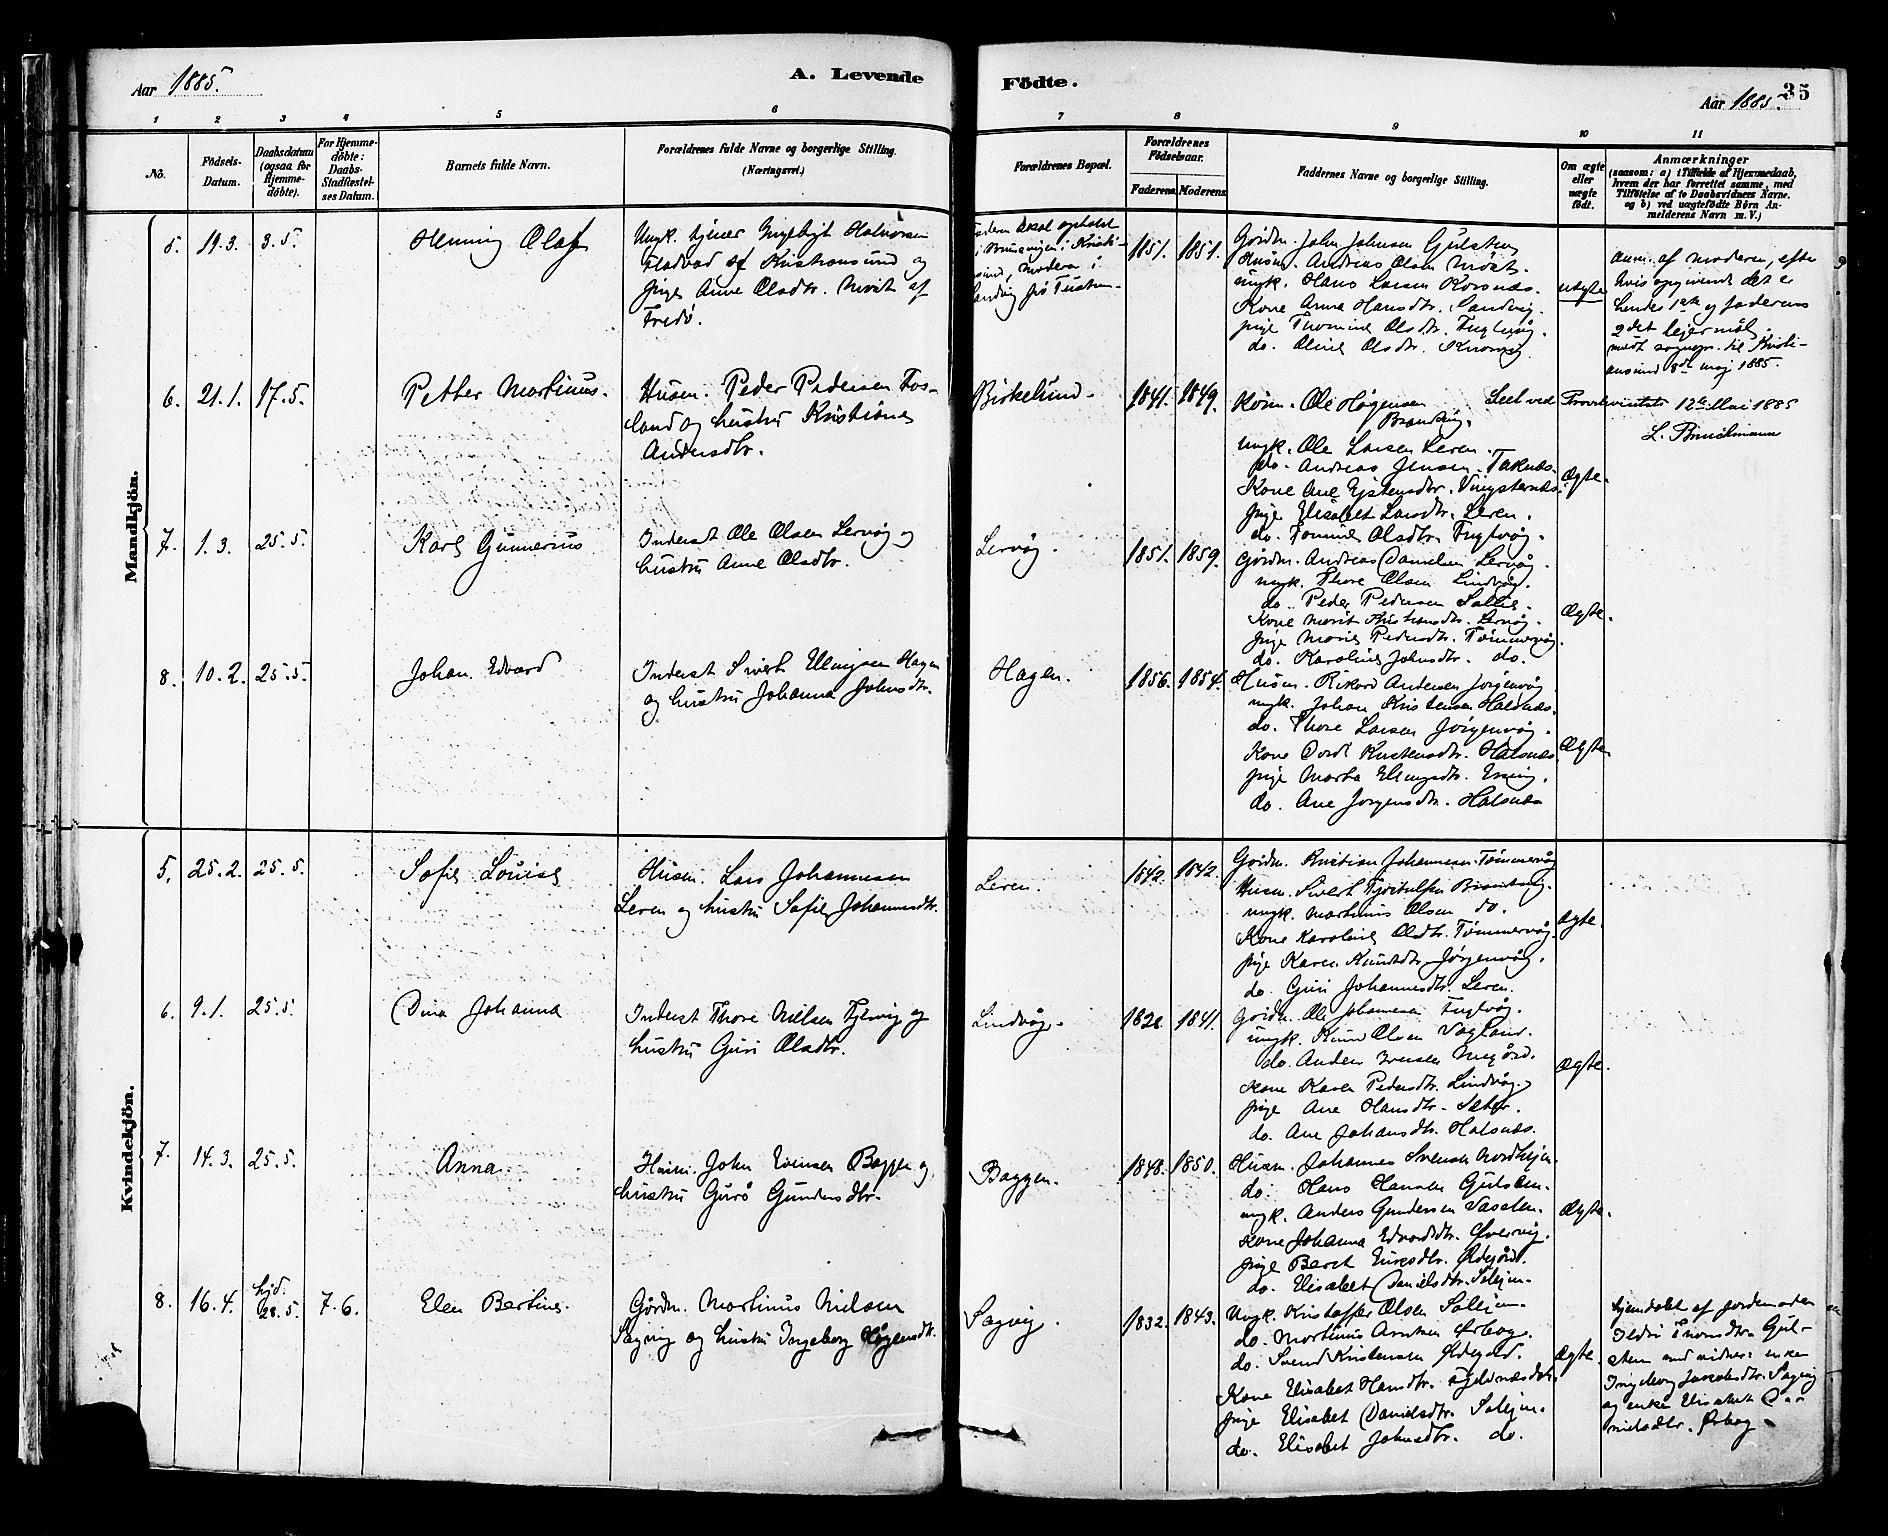 Aar 1885.
A. Levende
Fødte.
Aar 1885.
35
1 2 3 4 5 6 7 8 9 10 11
No.
Fødsels-
Datum.
Daabsdatum
(ogsaa for
Hjemme-
døbte).
For Hjemme-
døbte:
Daabs-
Stadfæstel-
ses Datum.
Barnets fulde Navn.
Forældrenes fulde Navne og borgerlige Stilling.
(Næringsvei.)
Forældrenes Bopæl.
Forældrenes
Fødselsaar.
Faderens.
Moderens.
Faddernes Navne og borgerlige Stilling.
Om ægte
eller
uægte
født.
Anmærkninger
(saasom: a) i Tilfælde af Hjemmedaab,
hvem der har forrettet samme, med
Tilføielse af to Daabsvidners Navne.
og b) ved uægtefødte Børn An-
melderens Navn m. V.)
Mandkjøn.
5. 19.3. 3.5.
Henning Olaf
Ungk. tjener Ingebrigt Halvorsen
Fladvad af Kristiansund og
Pige Anne Olsdtr. af
Fredø.
1851. 1851.
Gårdm. John Johnsen Gulstein
Husm. Andreas Olsen
ungk. Hans Larsen Korsnæs.
Kone Anna Hansdtr. Sandvig.
pige Thomine Olsdtr. Fuglevåg.
do. Oline Olsdtr.
uægte
af moderen, efter
hvis opgivende det er
hendes 1ste og faderens
2det lejermål.
til Kristi-
ansund 8de maj 1885.
6. 21.1. 17.5.
Petter Martinus.
Husm. Peder Pedersen Fos-
land og hustru Kristiane
Andersdtr.
Birkelund.
1841. 1849.
Ole Hågensen
Brandsvig.
ungk. Ole Larsen Leren.
do. Andreas Jensen
Kone Ane Ejstensdtr.
Pige Elisabet Larsdtr. Leren.
do. Tomine Olsdtr. Fuglvåg.
Ægte.
Seet ved Provstevisitats 12te Mai 1885
7. 1.3. 25.5.
Karl Gunnerius
Inderst Ole Olsen Lervåg og
hustru Anne Olsdtr.
Lervåg.
1851. 1859.
Gårdm. Andreas Danielsen Lervåg.
ungk. Thore Olsen Lindvåg.
do. Peder Pedersen
Kone Marit Kristensdtr. Lervåg.
pige Marie Pedersdtr. Tømmervåg.
do. Karoline Johnsdtr. do.
Ægte.
8. 10.2. 25.5.
Johan Edvard
Inderst Sivert Ellingsen Hagen
og hustru Johanna Johnsdtr.
Hagen.
1856. 1854.
Husm. Rikard Andersen Jørgenvåg
ungk. Johan Kristensen Halsnæs.
do. Thore Larsen Jørgenvåg.
Kone Dordi Kristensdtr. Halsnæs.
pige Marta Ellingsdtr.
do. Ane Jørgensdtr. Halsnæs
Ægte
Kvindekjøn.
5. 25.2. 25.5.
Sofie Louise
Husm. Lars Johannesen
Leren og hustru Sofie Johannesdtr.
Leren.
1842. 1842.
Gårdm. Kristian Johannesen Tømmervåg
Husm. Sivert
ungk. Martinus Olsen do.
Kone Karoline Olsdtr. Tømmervåg.
pige Karen Knutsdtr. Jørgenvåg.
do. Guri Johannesdtr. Leren.
Ægte.
6. 9.1. 25.5.
Dina Johanna
Inderst Thore Nielsen og
hustru Guri Olsdtr.
Lindvåg.
1841.
Gårdm. Ole Johannesen Fuglvåg.
ungk. Knud Olsen Vagland.
do. Anders Iversen
Kone Karen Pedersdtr. Lindvåg.
pige Ane Hansdtr. Sæter.
do. Ane Johansdtr. Halsnæs.
Ægte.
7. 14.3. 25.5.
Anna
Husm. John Evensen Baggen og
hustru Gurå Gundersdtr.
Baggen.
1848. 1850.
Husm. Johannes Svensen
do. Hans Hansen Gulstein.
ungk. Anders Gundersen
Kone Johanna Edvardsdtr.
pige Beret Ødegård.
do. Elisabet Danielsdtr. Solejm.
Ægte.
8. 16.4. hjd. 28.5. 7.6.
Elen Bertine.
Gårdm. Martinus Nielsen
Sagvig og hustru Ingeborg Hågensdtr.
Sagvig.
1832. 1843.
Ungk. Kristoffer Olsen Solejm.
do. Martinus
do. Svend Kristensen Ødegård.
Kone Elisabet Hansdtr.
pige Elisabet Danielsdtr. Solejm.
do. Elisabet Johnsdtr. do.
Ægte.
hjemdøbt af jordemoder
Ildri Thomsdtr. Gul-
stein med vidner: enke
Ingeborg Jakobsdtr. Sagvig
og enke Elisabet Da-
nielsdtr.